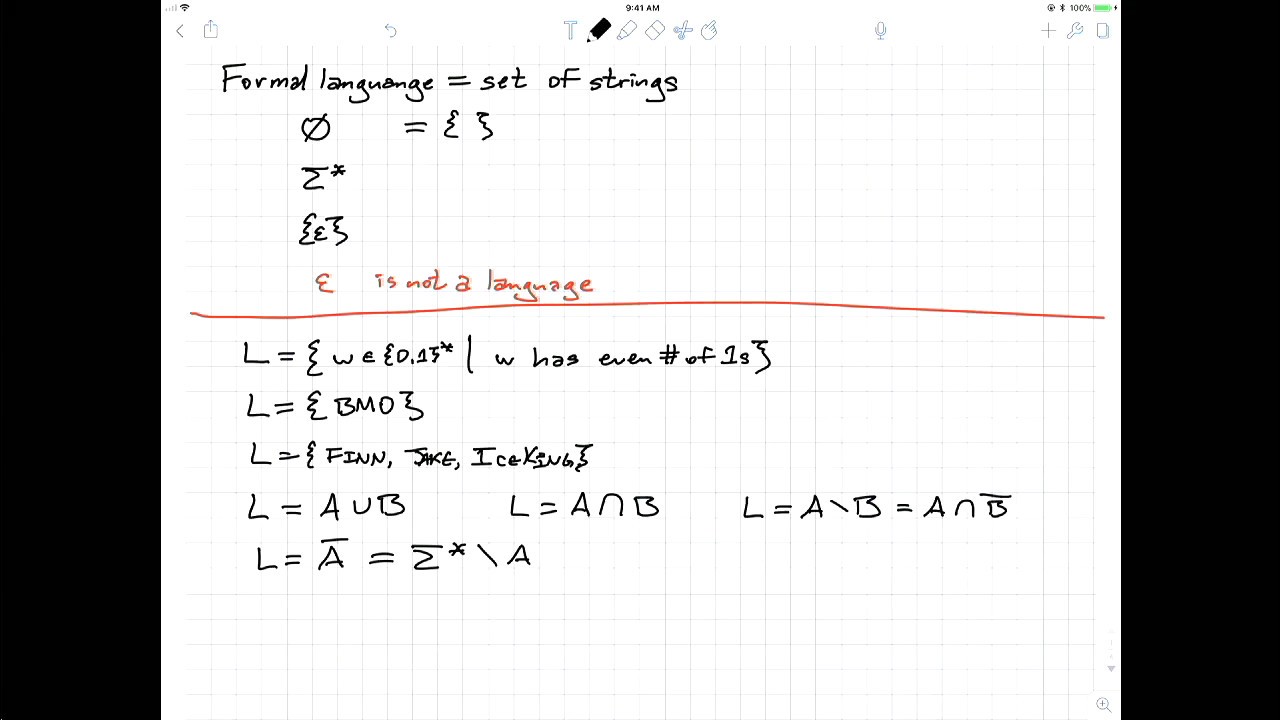 9:41 AM
100%
T
Formal languange = set of strings
∅ = { }
Σ*
{ε}
ε is not a language
L = { w ∈ {0,1}* | w has even # of 1s }
L = { BMO }
L = { FINN, JAKE, IceKING }
L = A ∪ B L = A ∩ B L = A \ B = A ∩ B̅
L = A̅ = Σ* \ A